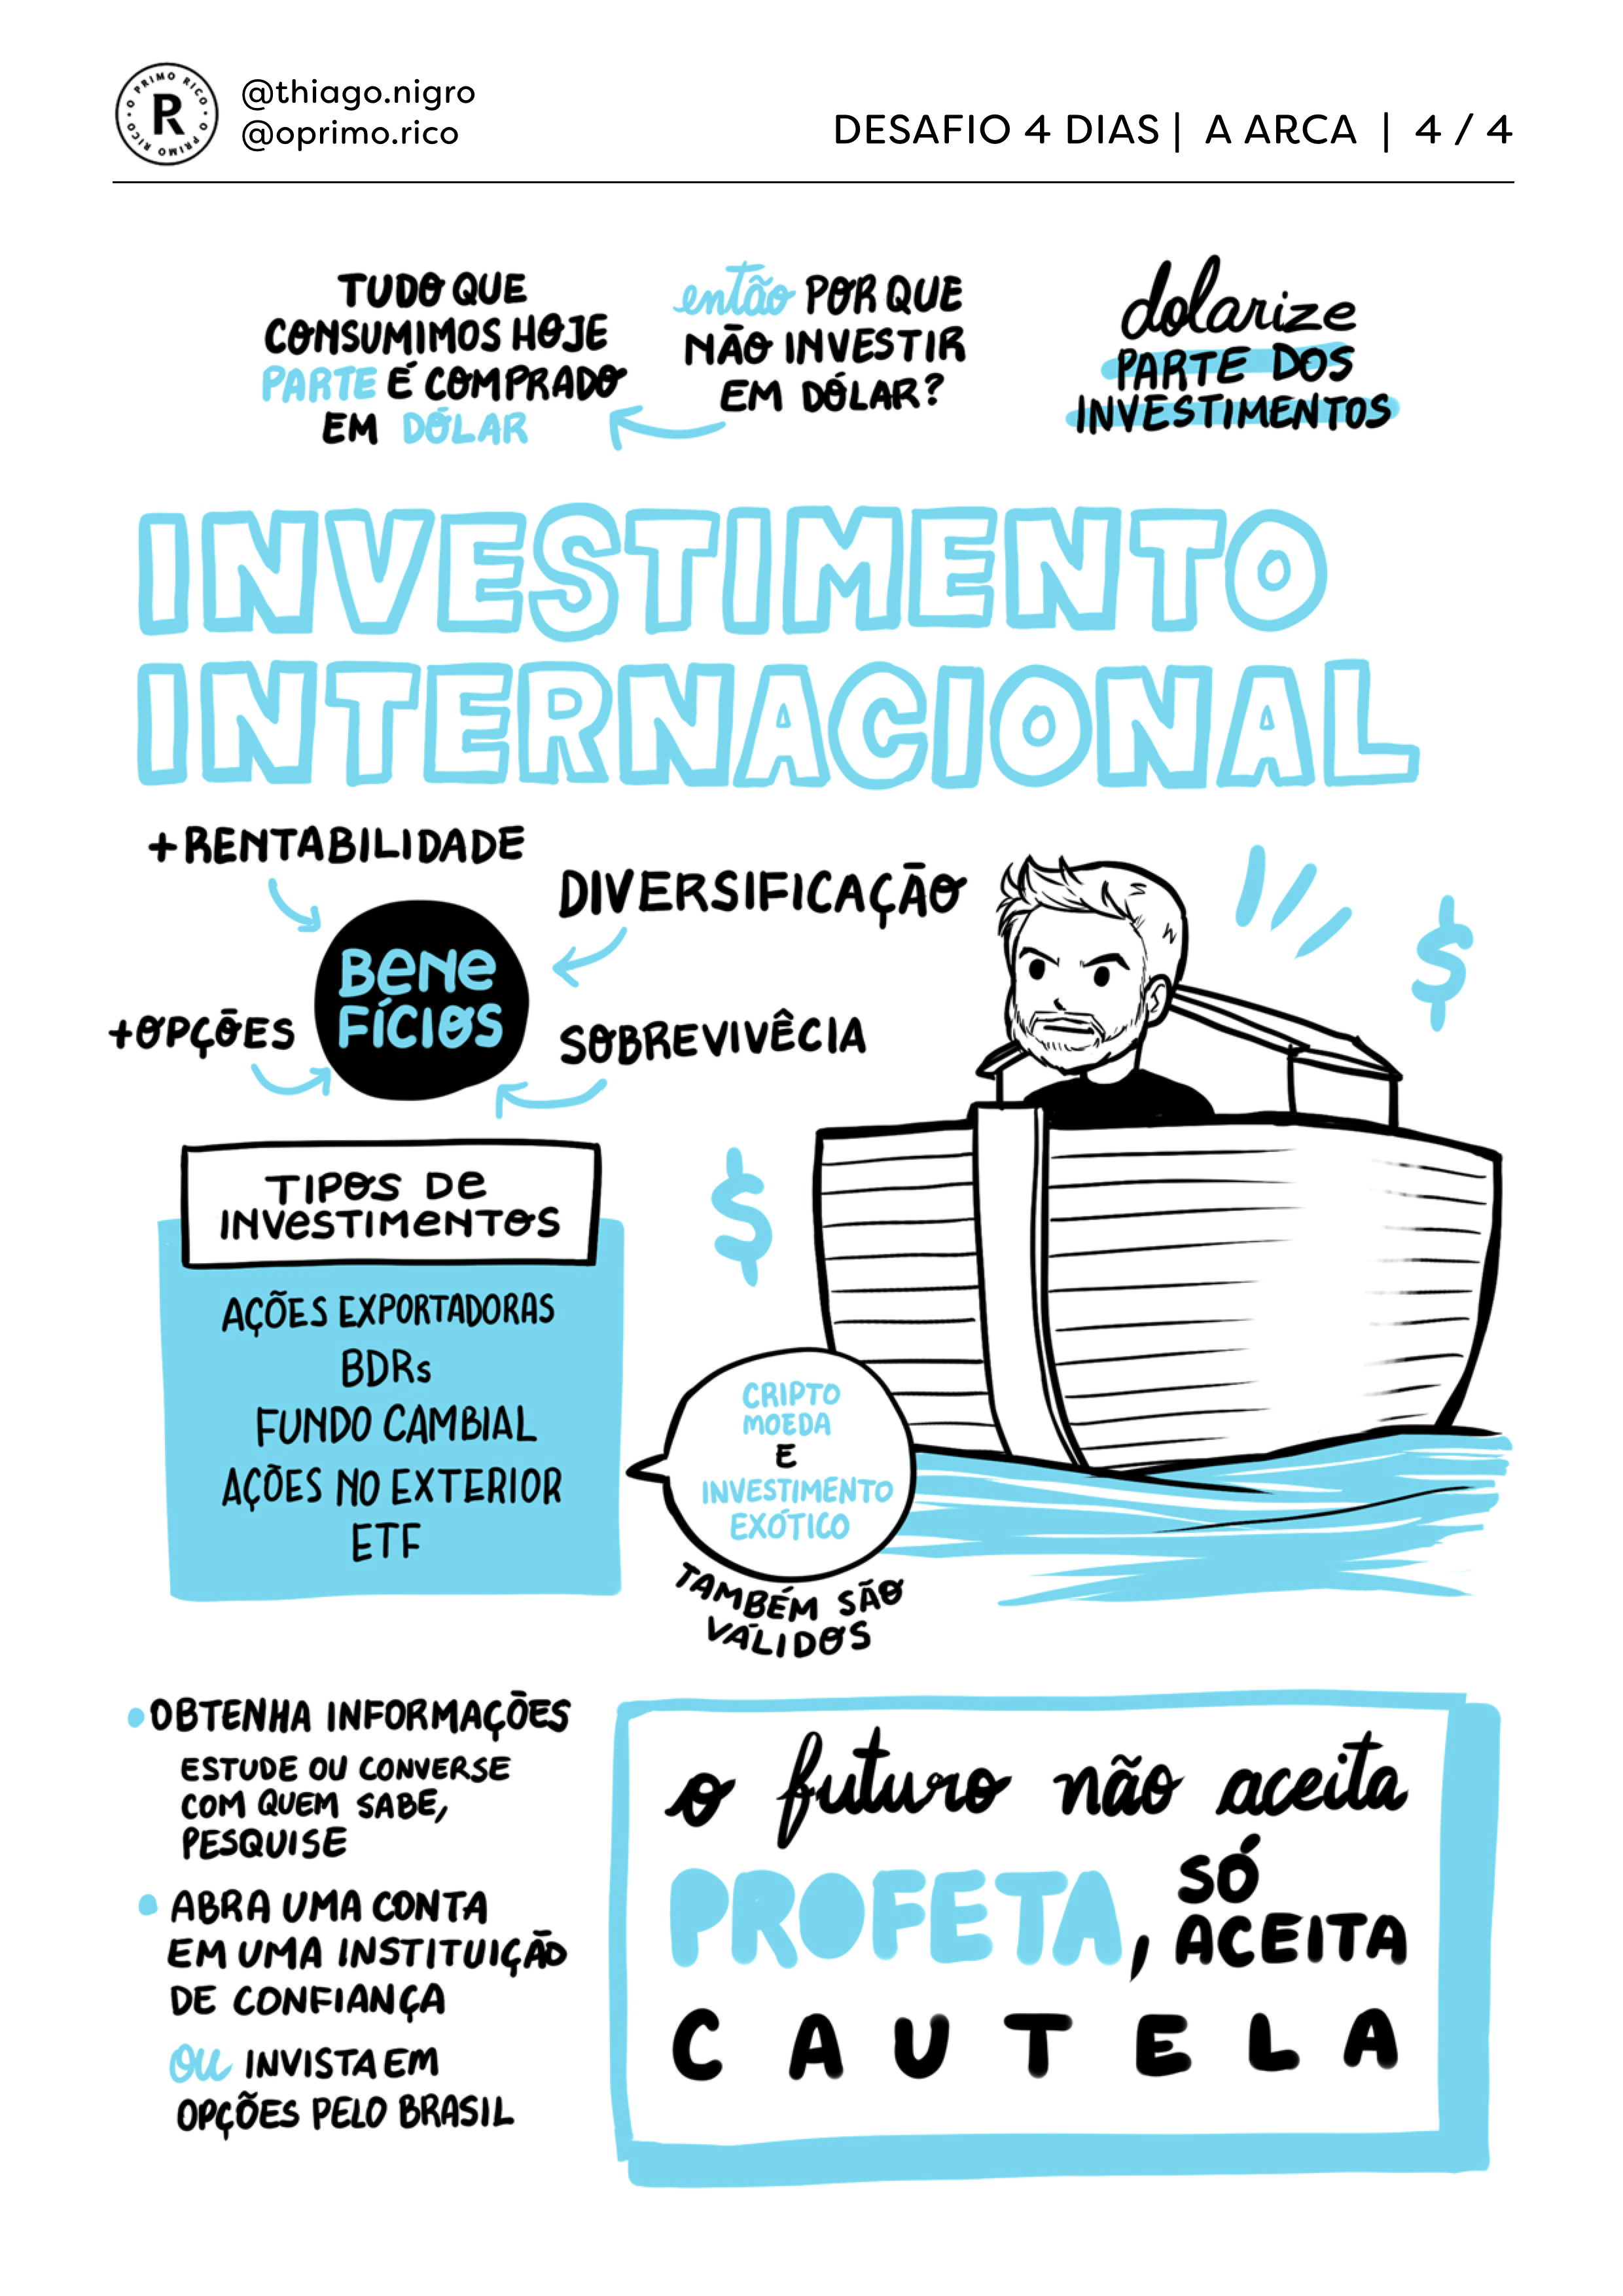 O PRIMO RICO · O PRIMO RICO ·
R
@thiago.nigro
@oprimo.rico
DESAFIO 4 DIAS | A ARCA | 4 / 4
TUDO QUE
CONSUMIMOS HOJE
PARTE É COMPRADO
EM DÓLAR
então POR QUE
NÃO INVESTIR
EM DÓLAR?
dolarize
PARTE DOS
INVESTIMENTOS
INVESTIMENTO
INTERNACIONAL
+RENTABILIDADE
DIVERSIFICAÇÃO
BENE
FÍCIOS
+OPÇÕES
SOBREVIVÊCIA
$
$
TIPOS DE
INVESTIMENTOS
AÇÕES EXPORTADORAS
BDRs
FUNDO CAMBIAL
AÇÕES NO EXTERIOR
ETF
CRIPTO
MOEDA
E
INVESTIMENTO
EXÓTICO
TAMBÉM SÃO
VÁLIDOS
• OBTENHA INFORMAÇÕES
ESTUDE OU CONVERSE
COM QUEM SABE,
PESQUISE
• ABRA UMA CONTA
EM UMA INSTITUIÇÃO
DE CONFIANÇA
OU INVISTA EM
OPÇÕES PELO BRASIL
o futuro não aceita
PROFETA, SÓ
ACEITA
CAUTELA